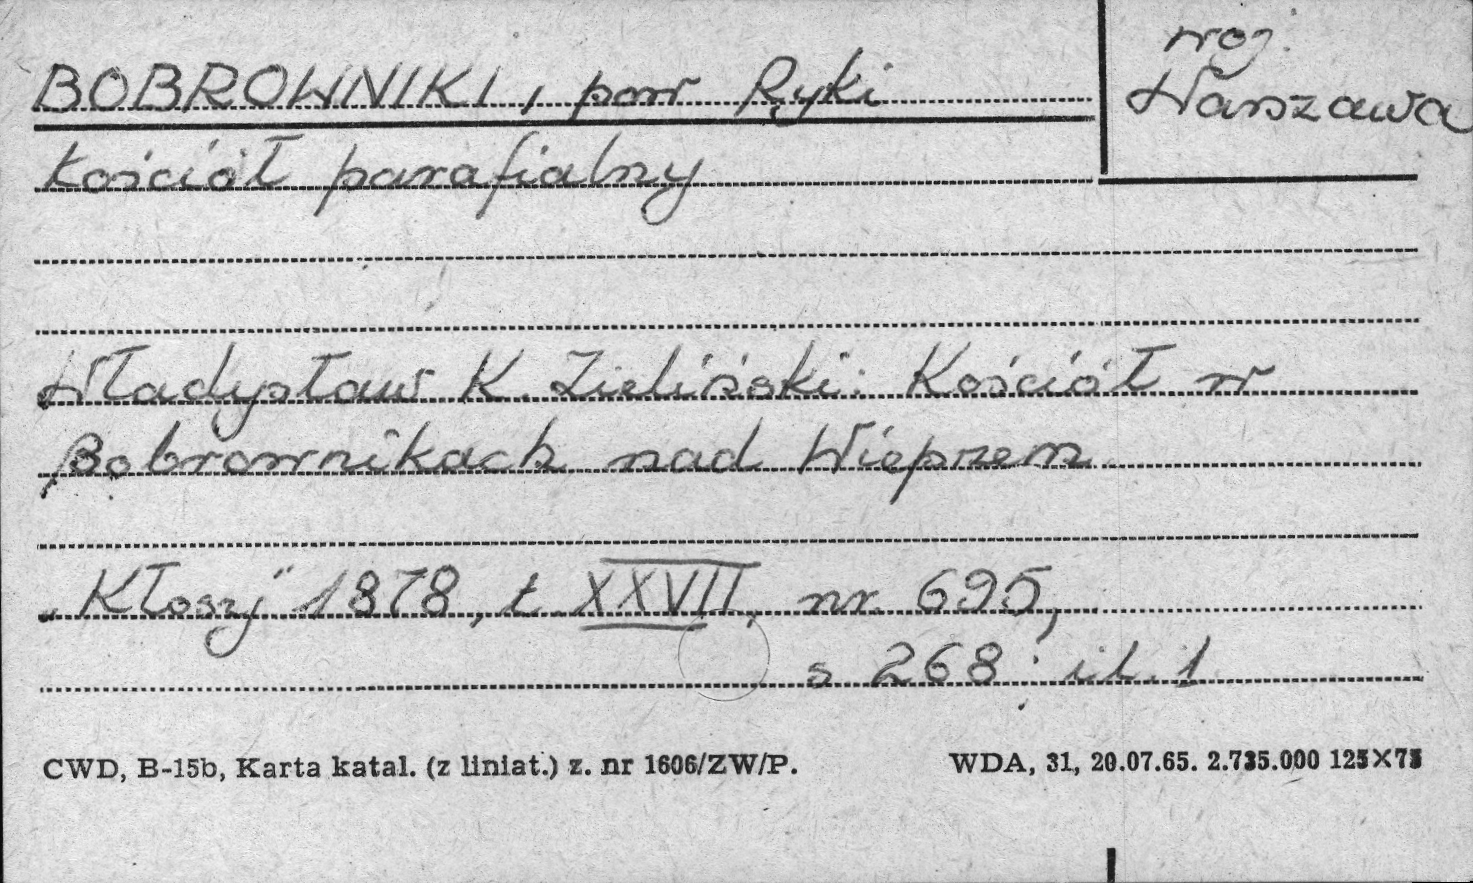 BOBROWNIKI, pow Ryki
woj.
Warszawa
kościół parafialny
Władysław K. Zieliński: Kościół w
Bobrownikach nad Wieprzem
„Kłosy" 1878, t. XXVII, nr. 695,
s 268. il. 1
CWD, B-15b, Karta katal. (z liniat.) z. nr 1606/ZW/P.
WDA, 31, 20.07.65. 2.735.000 125×75